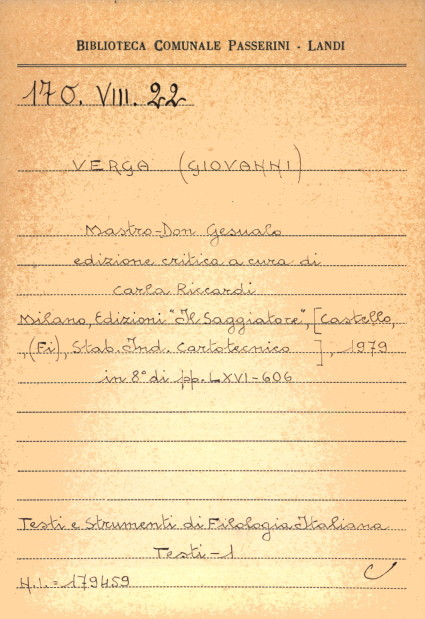 BIBLIOTECA COMUNALE PASSERINI - LANDI
170. VIII. 22
VERGA (GIOVANNI)
Mastro-Don Gesualo
edizione critica a cura di
Carla Riccardi
Milano, Edizioni "Il Saggiatore", [Castello,
,(Fi), Stab. Ind. Cartotecnico ], 1979
in 8° di pp. LXVI-606
Testi e Strumenti di Filologia Italiana
Testi-1
N.I. = 179459